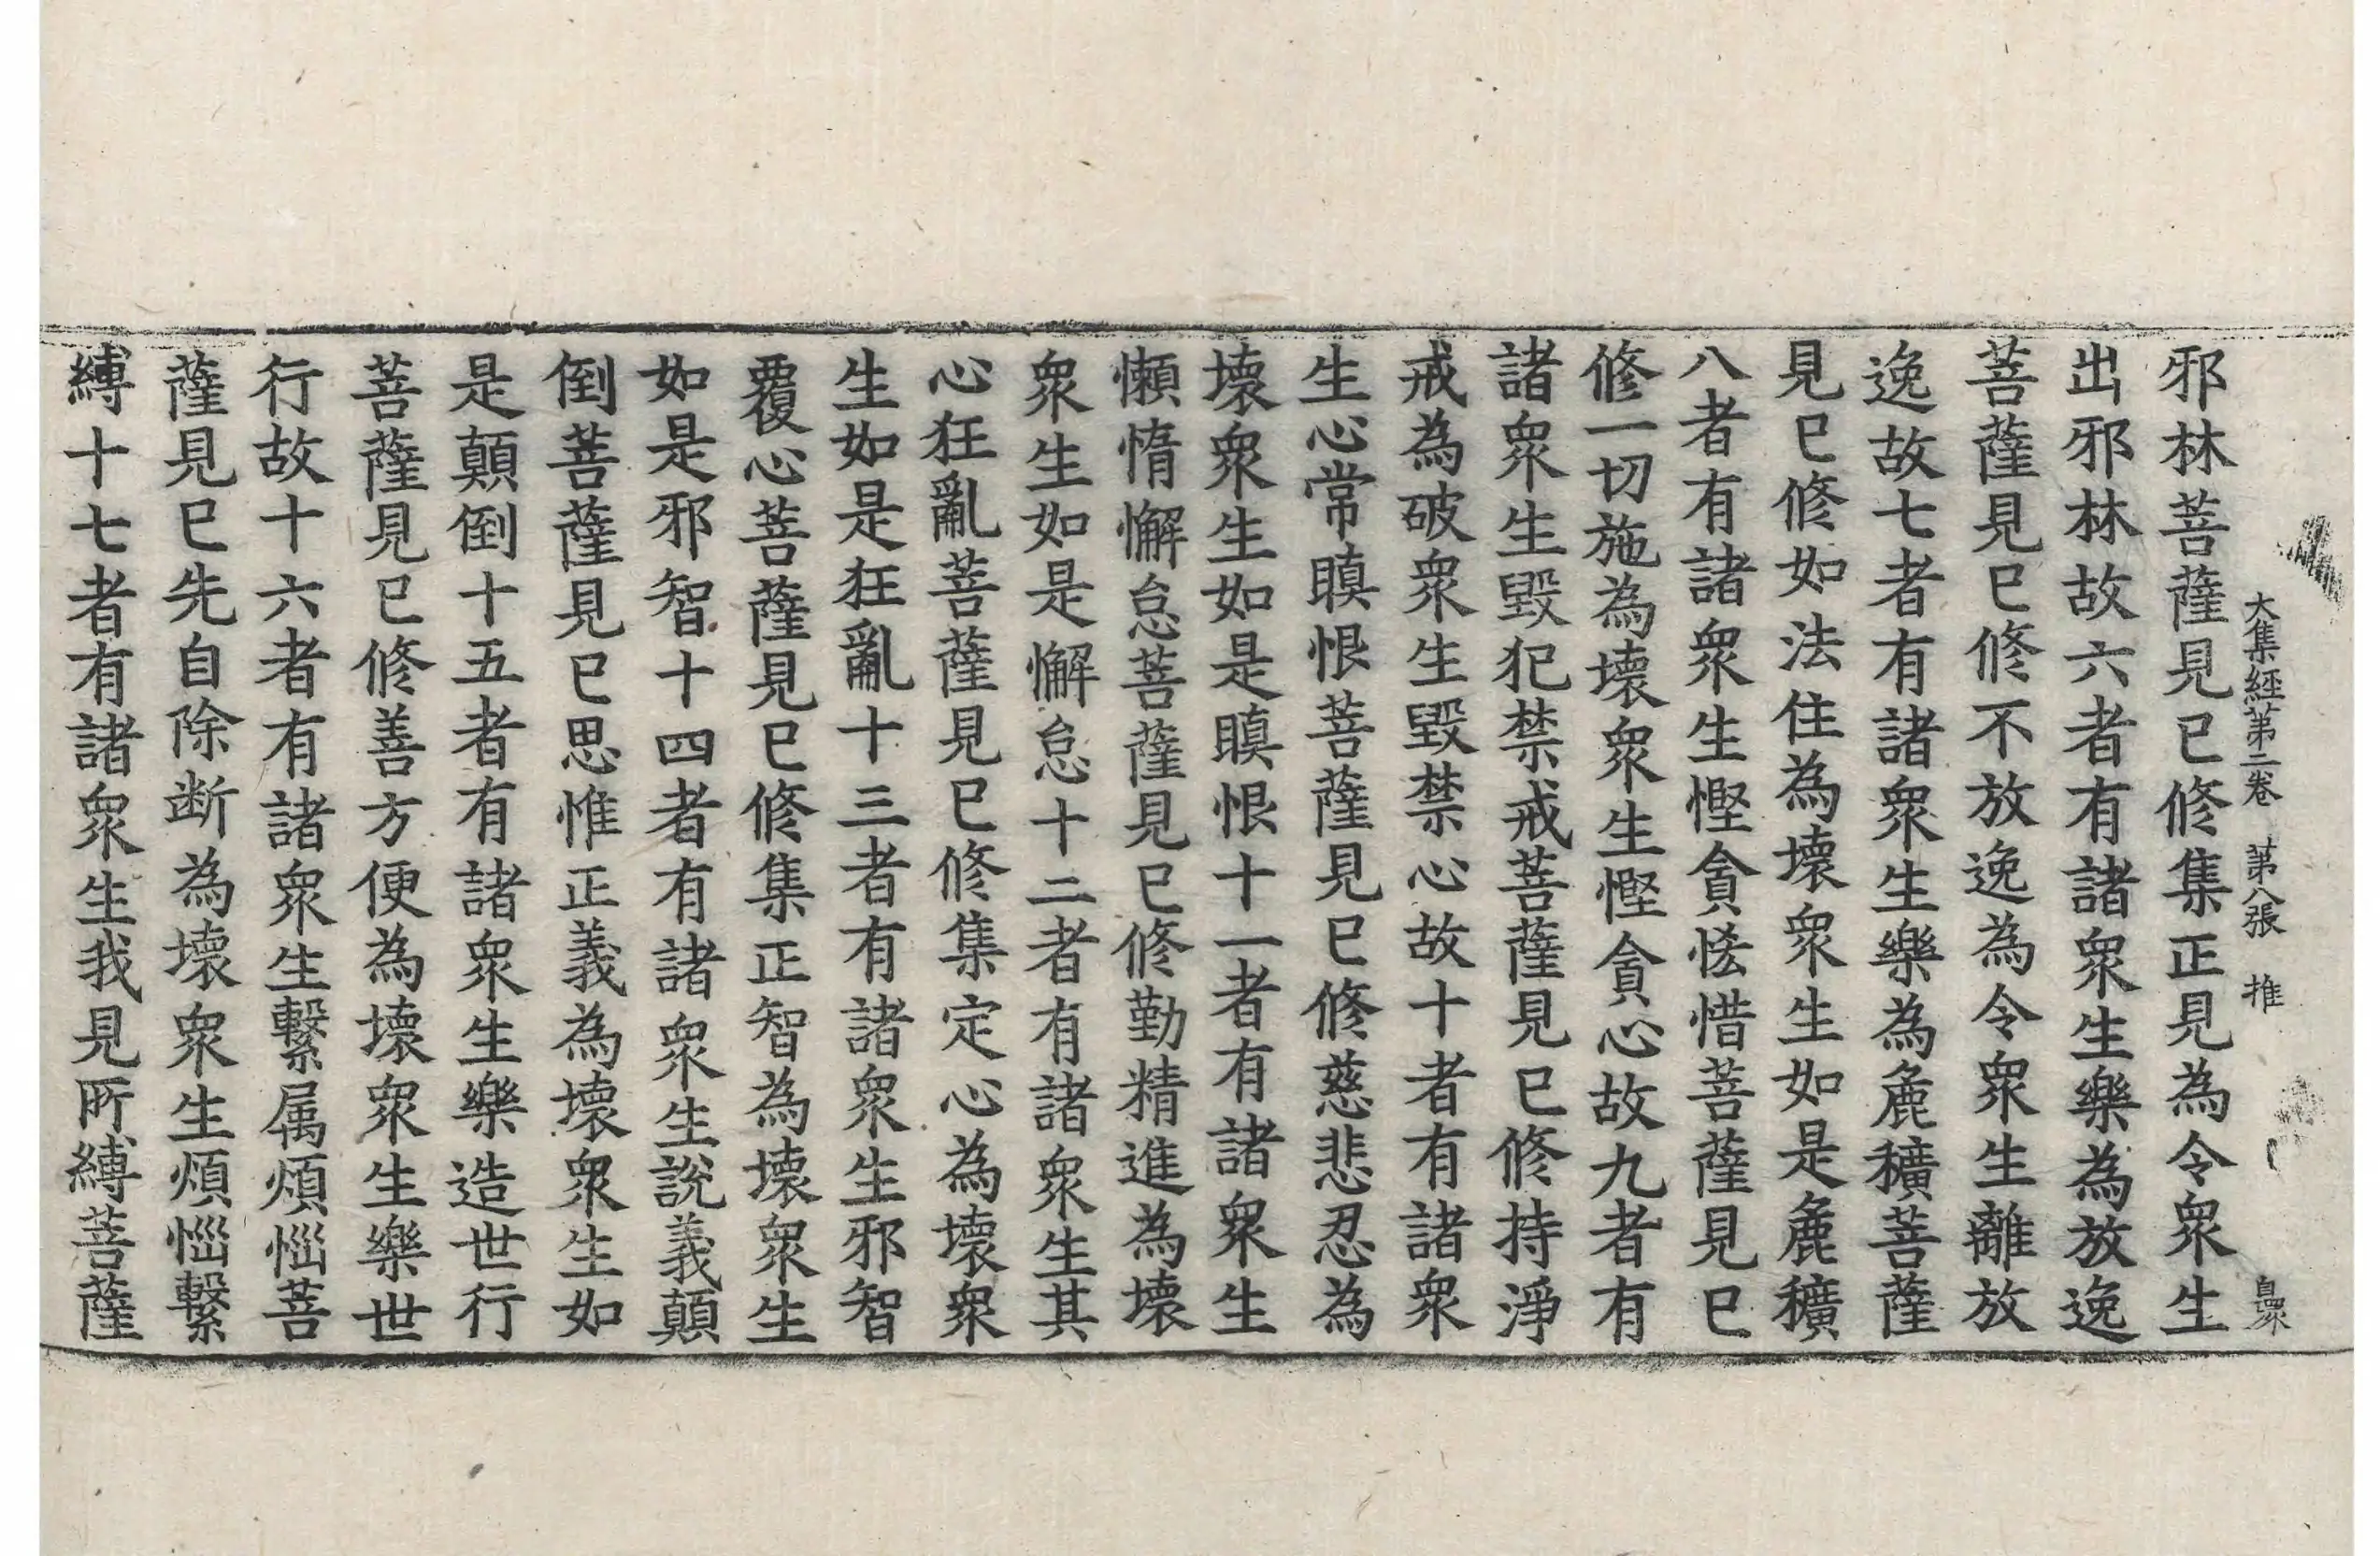 大集經第二卷　第八張　推
自眾
邪林菩薩見已修集正見為令眾生
出邪林故六者有諸眾生樂為放逸
菩薩見已修不放逸為令眾生離放
逸故七者有諸眾生樂為麁穬菩薩
見已修如法住為壞眾生如是麁穬
八者有諸眾生慳貪悋惜菩薩見已
修一切施為壞眾生慳貪心故九者有
諸眾生毀犯禁戒菩薩見已修持淨
戒為破眾生毀禁心故十者有諸眾
生心常瞋恨菩薩見已修慈悲忍為
壞眾生如是瞋恨十一者有諸眾生
懶惰懈怠菩薩見已修勤精進為壞
眾生如是懈怠十二者有諸眾生其
心狂亂菩薩見已修集定心為壞眾
生如是狂亂十三者有諸眾生邪智
覆心菩薩見已修集正智為壞眾生
如是邪智十四者有諸眾生說義顛
倒菩薩見已思惟正義為壞眾生如
是顛倒十五者有諸眾生樂造世行
菩薩見已修善方便為壞眾生樂世
行故十六者有諸眾生繫属煩惱菩
薩見已先自除断為壞眾生煩惱繫
縛十七者有諸眾生我見所縛菩薩